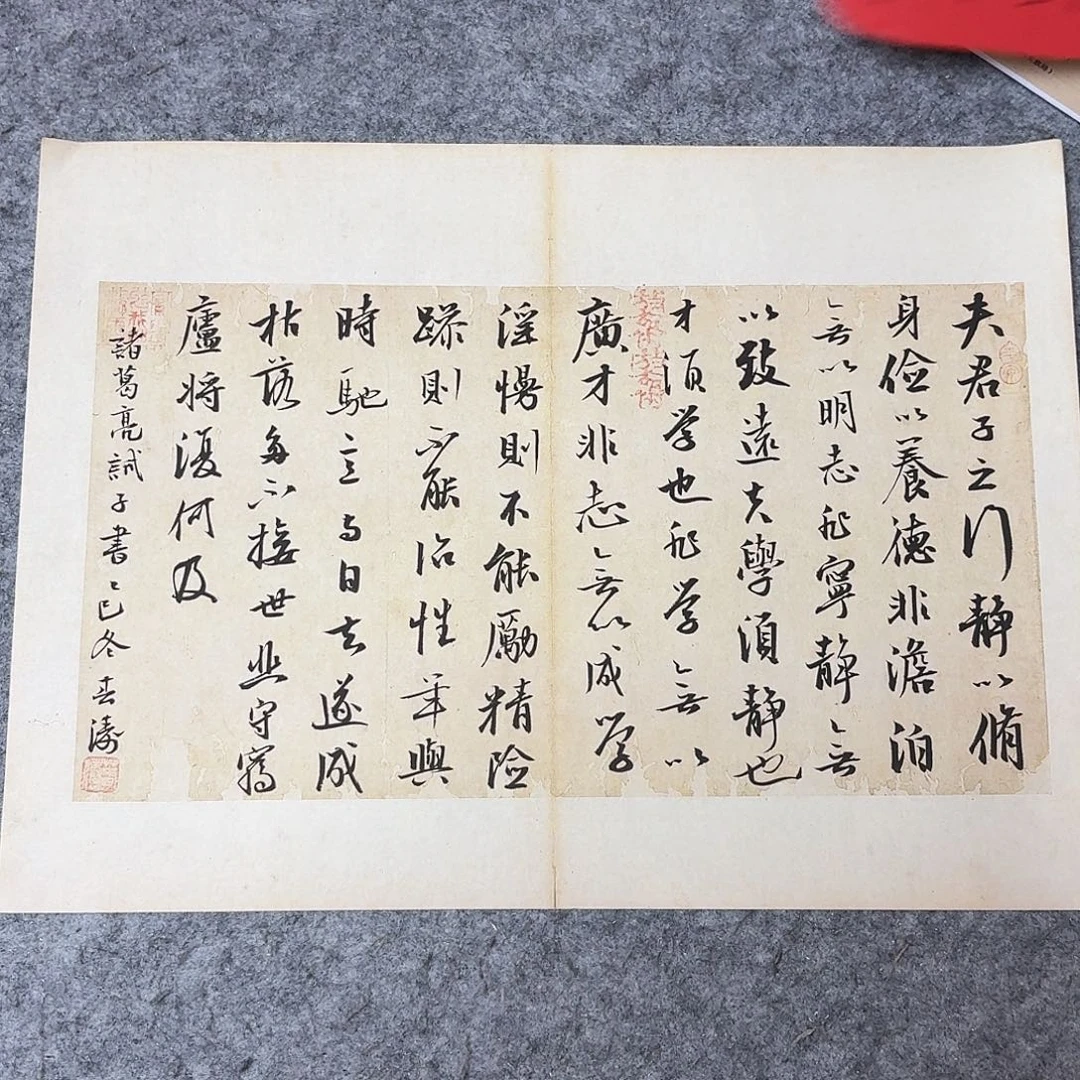 夫君子之行静以脩
身儉以養德非澹泊
無以明志非寧静無
以致遠夫學須静也
才須学也非学無以
廣才非志無以成学
淫慢則不能勵精險
躁則不能治性年與
時馳意与日去遂成
枯落多不接世悲守窮
廬將復何及
諸葛亮誡子書乙巳冬